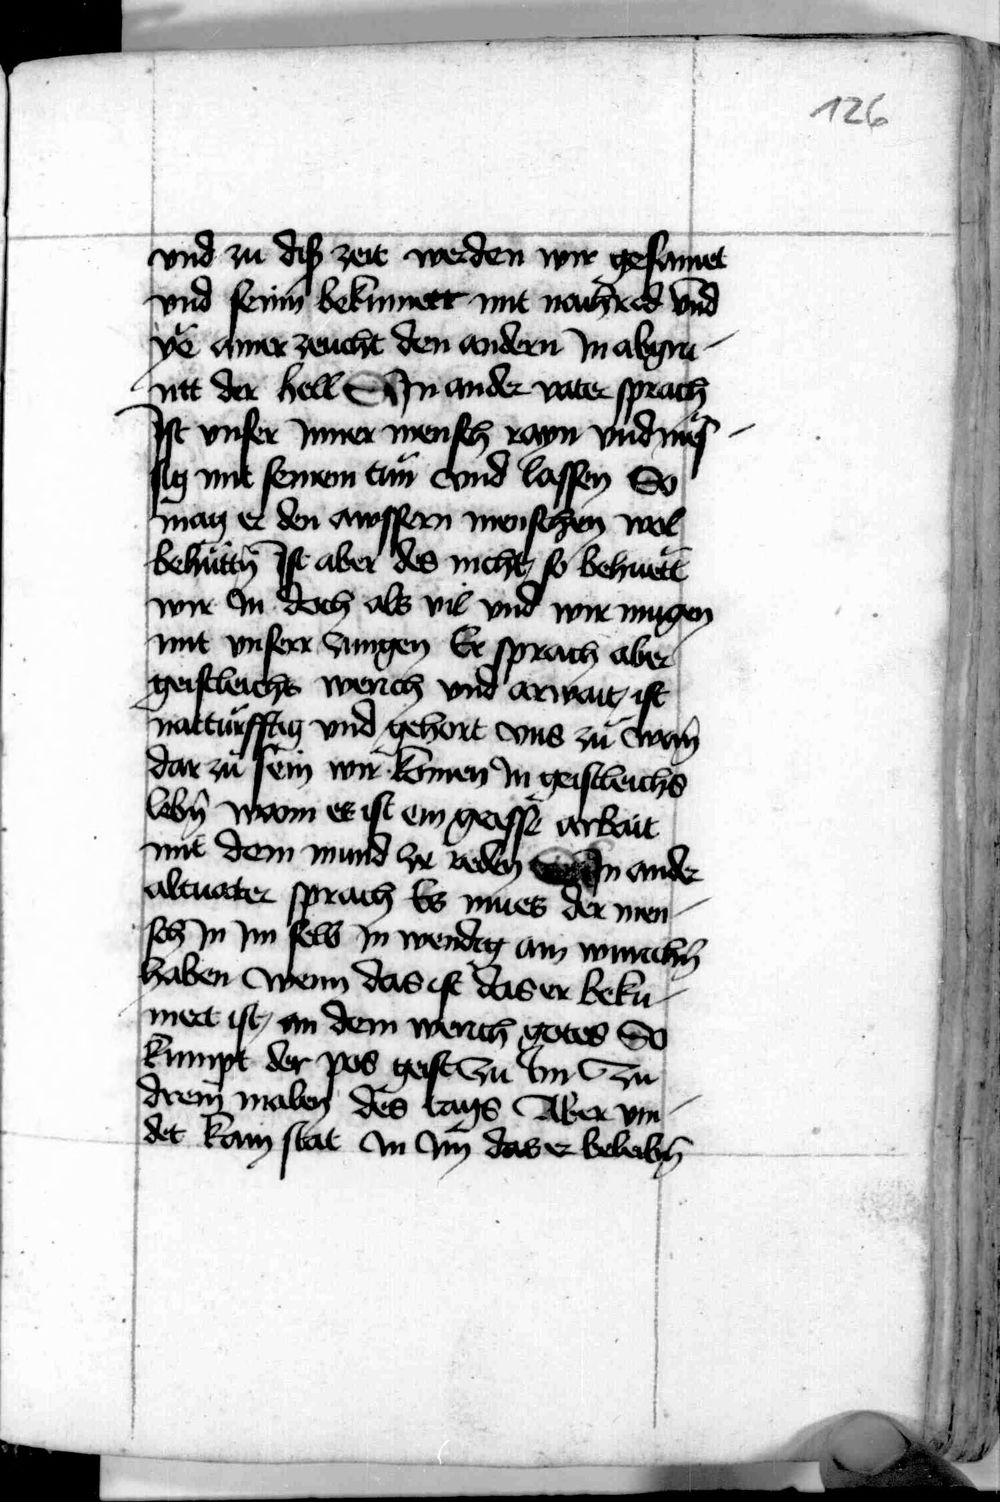 126
vnd zu diß zeit werden wir gesamet
vnd sein bekumert mit nachred vnd
ye ainer zeucht den andern in abgru-
ntt der hell Ein ander vater sprach
Ist vnser inner mensch rayn vnd mes-
sig mit seinem tun vnd lassen So
mag er den awssern menschen wol
behuttn̄ Ist aber des nicht so behuett
wir in doch als vil vnd wir mugen
mit vnserr zungen Er sprach aber
geistleichs werich vnd arwait ist
notturfftig vnd gehort vns zu wan̄
dar zu sein wir komen in geistleichs
lebn̄ wann es ist ein grosse arbait
mit dem mund zw reden Ein ander
altuater sprach Es mues der men-
sch in im selb in wendig ain wurchn̄
haben wenn das ist das er beku-
mert ist an dem werich gotes So
kumpt der pos geist zu im zu
drein maben des tags Aber vin-
det kain stat in im das er beleibn̄